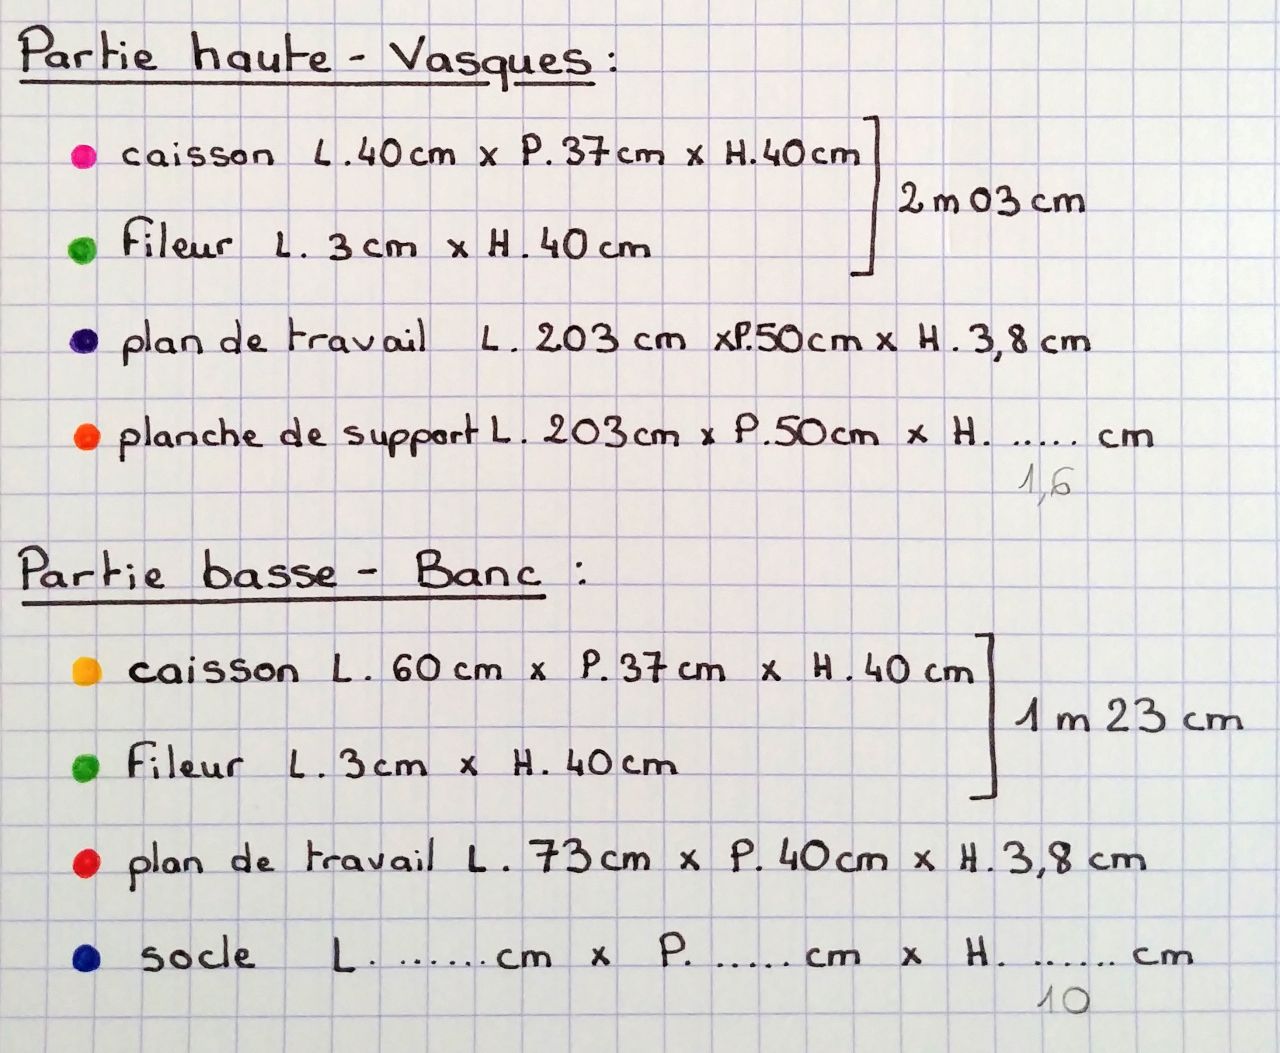 Partie haute - Vasques :
caisson L. 40 cm x P. 37 cm x H. 40 cm
2 m 03 cm
fileur L. 3 cm x H. 40 cm
plan de travail L. 203 cm x P. 50 cm x H. 3,8 cm
planche de support L. 203 cm x P. 50 cm x H. ..... cm
1,6
Partie basse - Banc :
caisson L. 60 cm x P. 37 cm x H. 40 cm
1 m 23 cm
fileur L. 3 cm x H. 40 cm
plan de travail L. 73 cm x P. 40 cm x H. 3,8 cm
socle L. ...... cm x P. ..... cm x H. ...... cm
10